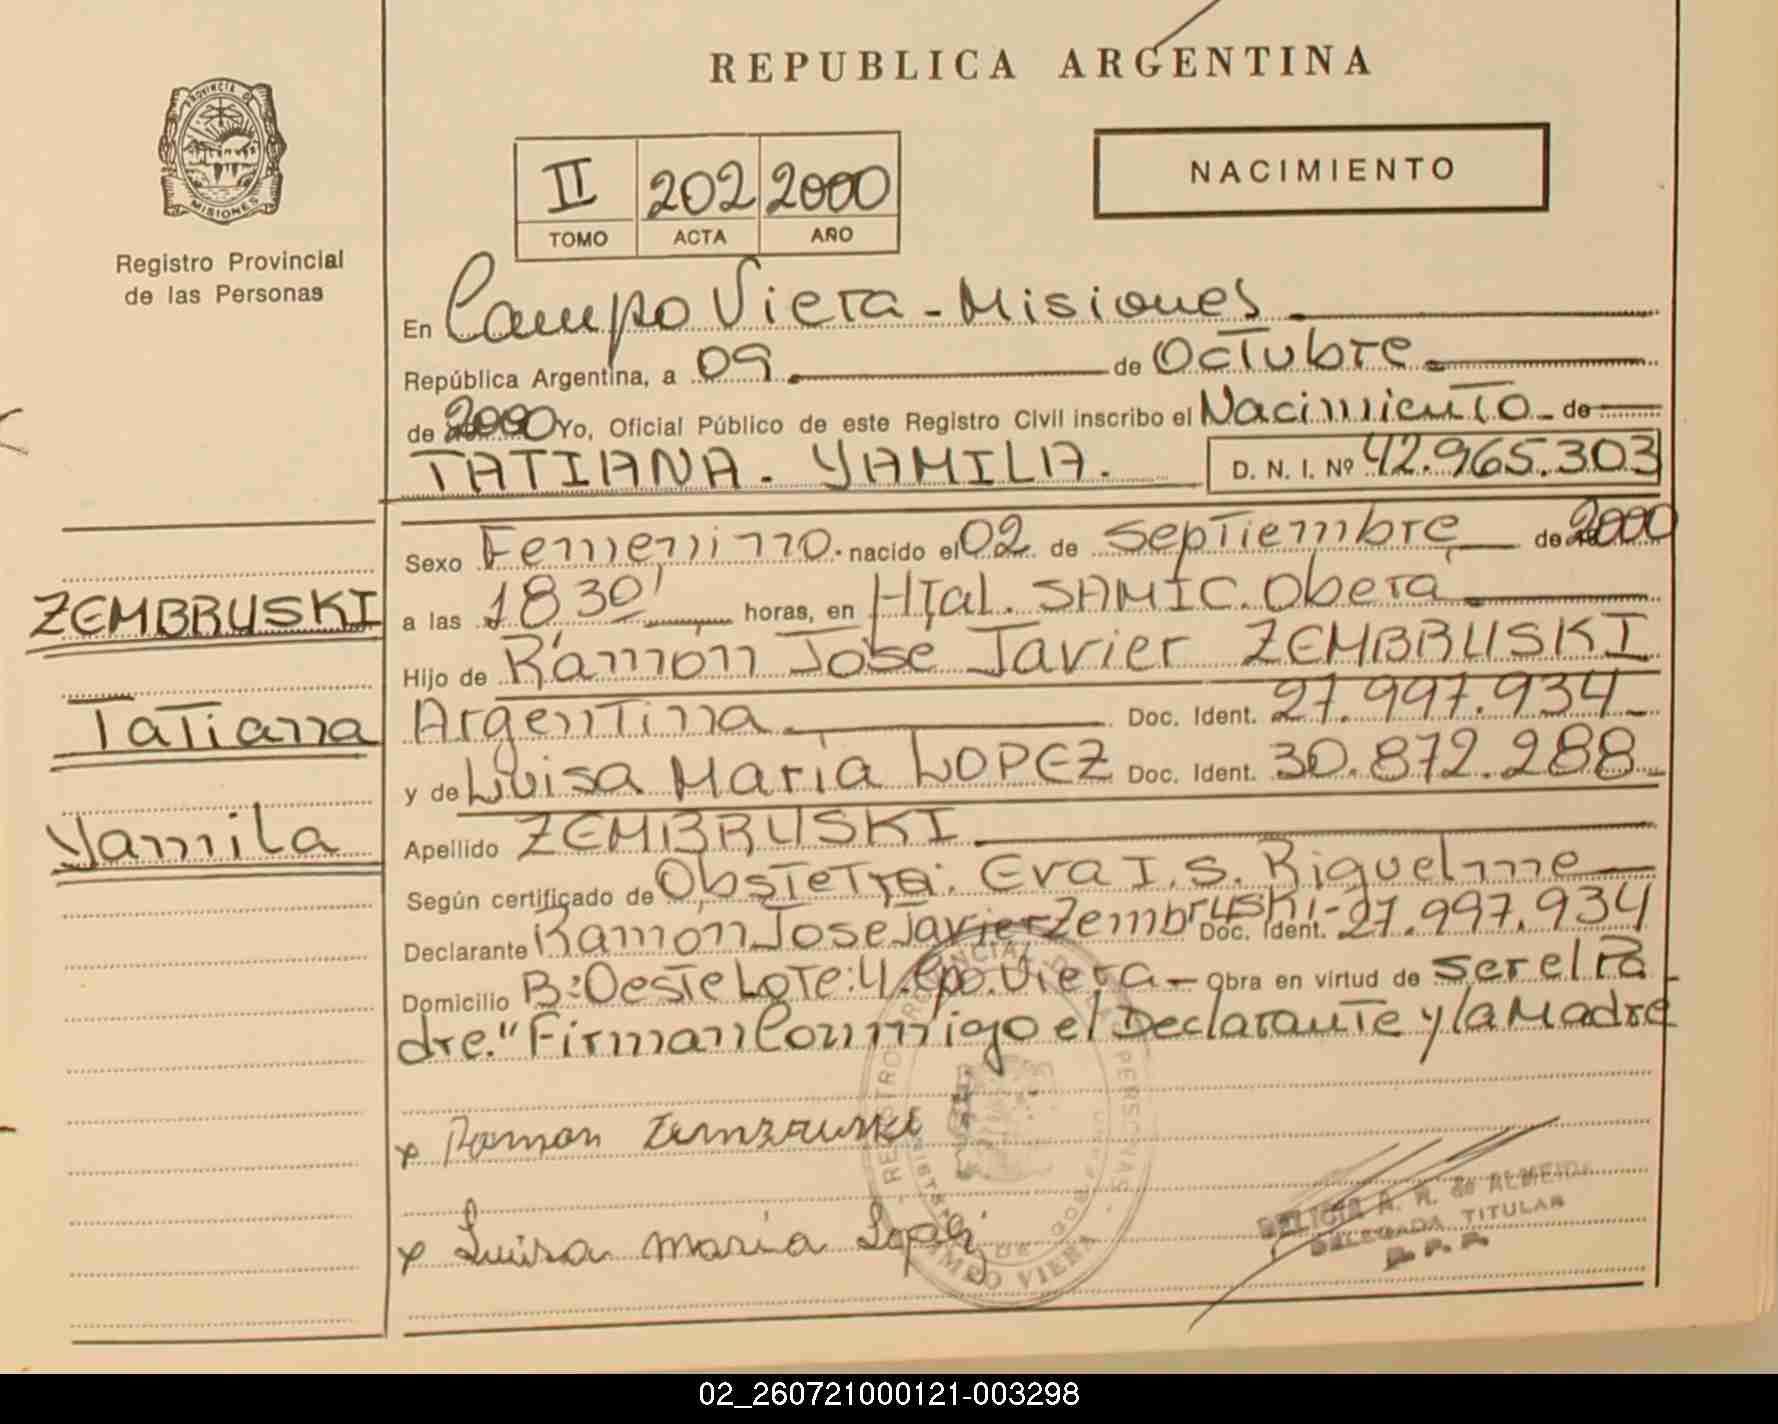 REPUBLICA ARGENTINA
PROVINCIA DE MISIONES
Registro Provincial
de las Personas
II 202 2000
TOMO ACTA AÑO
NACIMIENTO
En Campo Viera - Misiones
República Argentina, a 09 de Octubre
de 2000 Yo, Oficial Público de este Registro Civil inscribo el Nacimiento de
TATIANA. YAMILA. D. N. I. Nº 42.965.303
ZEMBRUSKI
Tatiana
Yamila
Sexo Femenino. nacido el 02 de septiembre de 2000
a las 18 30' horas, en Htal. SAMIC. Oberá
Hijo de Ramón José Javier ZEMBRUSKI
Argentina Doc. Ident. 27.997.934
y de Luisa María LOPEZ Doc. Ident. 30.872.288
Apellido ZEMBRUSKI
Según certificado de Obstetra: Eva I. S. Riquelme
Declarante Ramón José Javier Zembruski - Doc. Ident. 27.997.934
Domicilio B: Oeste Lote: 4. Cpo. Viera - Obra en virtud de ser el Pa
dre." Firman Conmigo el Declarante y la Madre
x Ramon Zembruski
x Luisa maria Lopez
REGISTRO PROVINCIAL DE LAS PERSONAS
CAMPO VIERA
DELICIA A. R. de ALMEIDA
DELEGADA TITULAR
R. P. P.
02_260721000121-003298